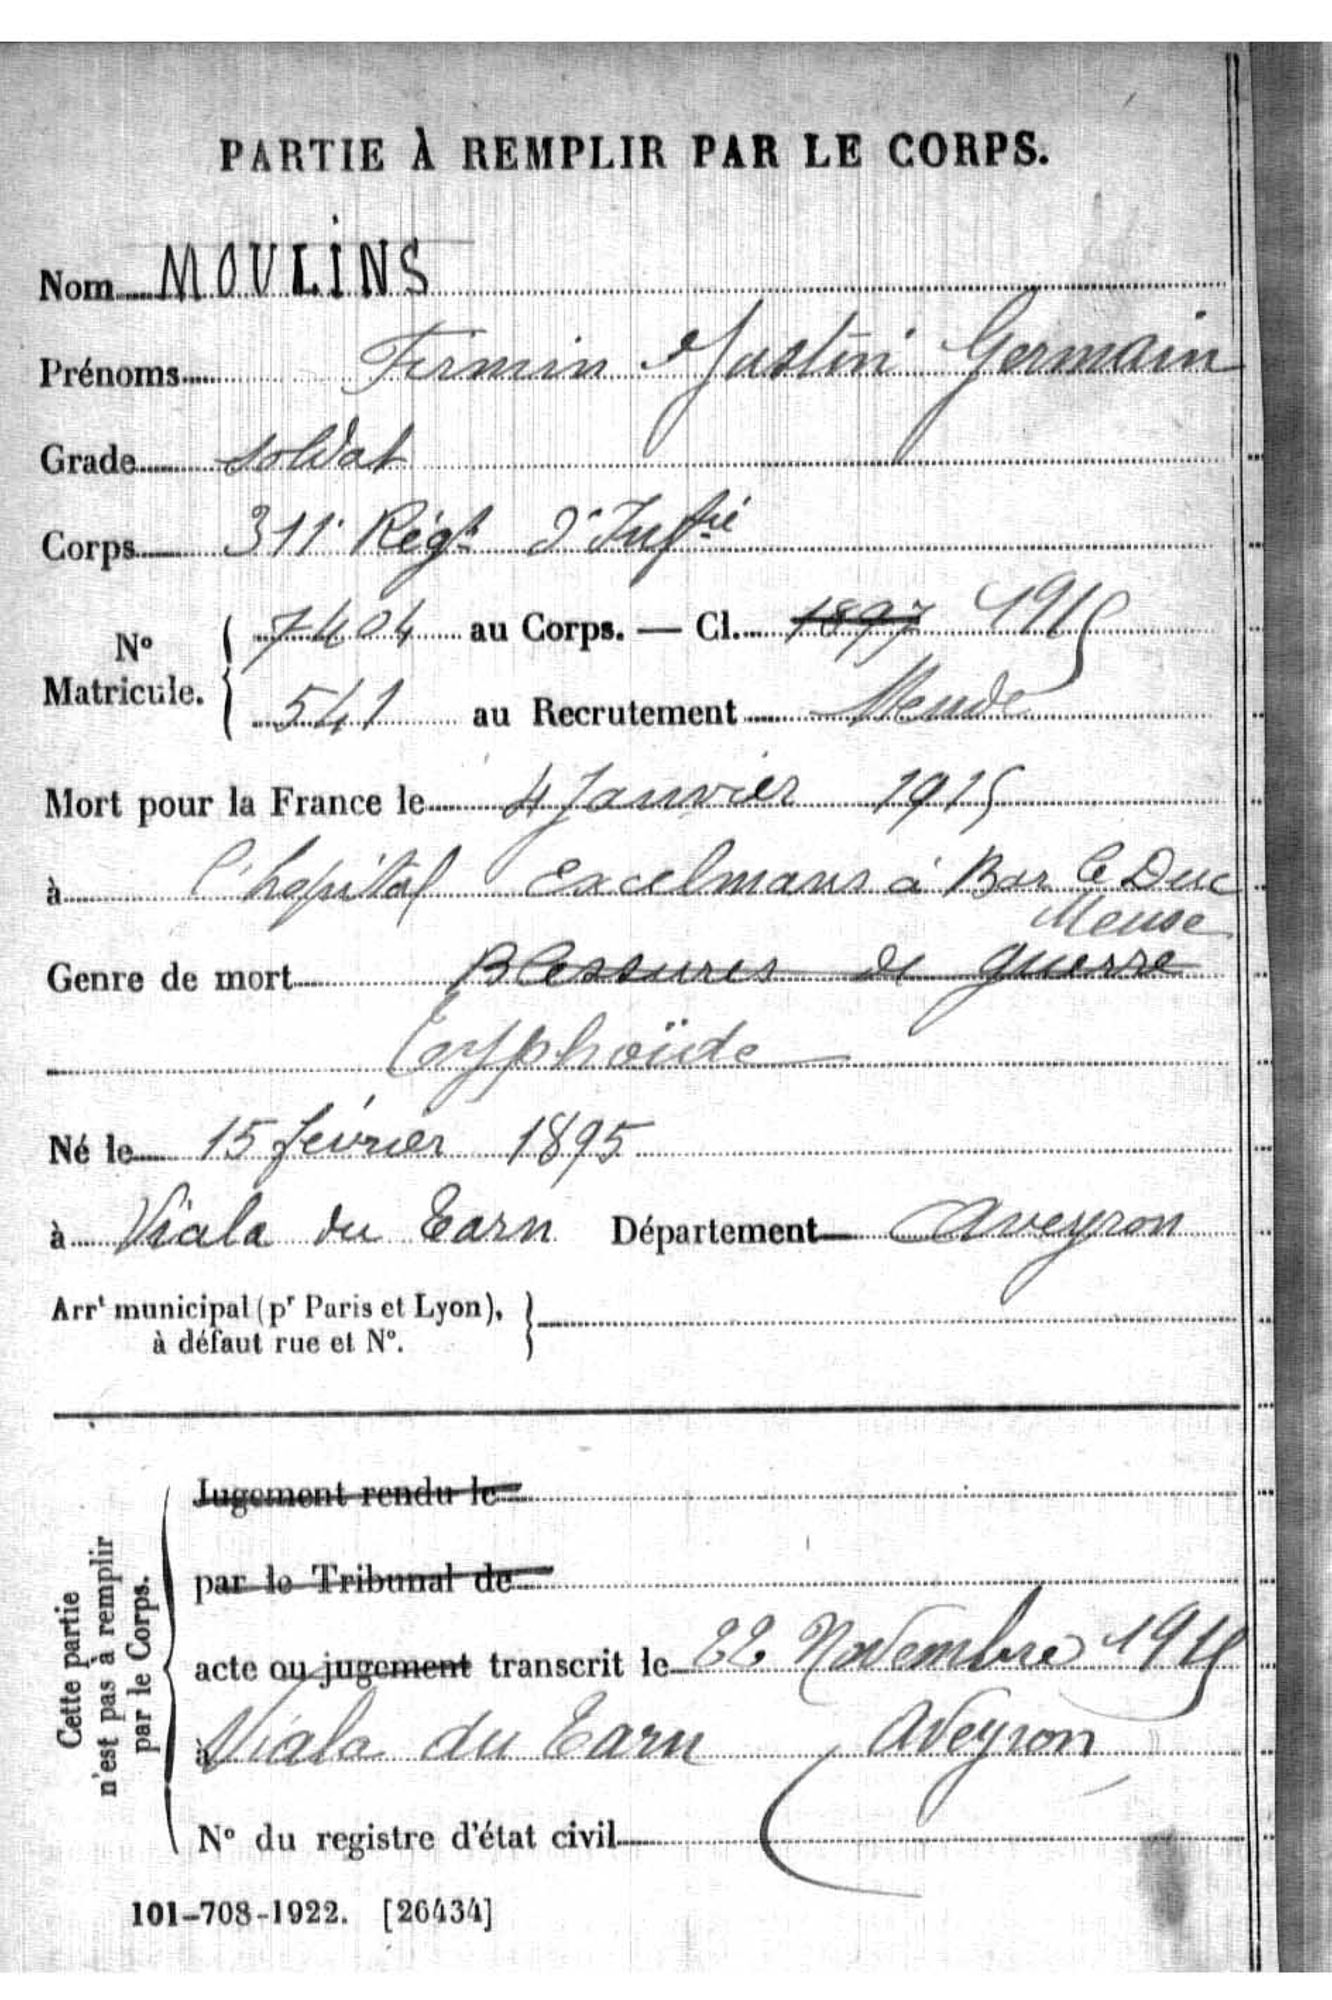 PARTIE À REMPLIR PAR LE CORPS.
Nom MOULINS
Prénoms Firmin Justin Germain
Grade soldat
Corps 311e Régt d'Inftrie
N° Matricule.
7404 au Corps. — Cl. 1897 1915
541 au Recrutement Mende
Mort pour la France le 4 Janvier 1915
à l'hopital Excelmans à Bar le Duc
Meuse
Genre de mort Blessures de guerre
Typhoïde
Né le 15 février 1895
à Viala du Tarn Département Aveyron
Arrt municipal (pr Paris et Lyon),
à défaut rue et N°.
Cette partie
n'est pas à remplir
par le Corps.
Jugement rendu le
par le Tribunal de
acte ou jugement transcrit le 22 Novembre 1915
à Viala du Tarn Aveyron
N° du registre d'état civil
101-708-1922. [26434]